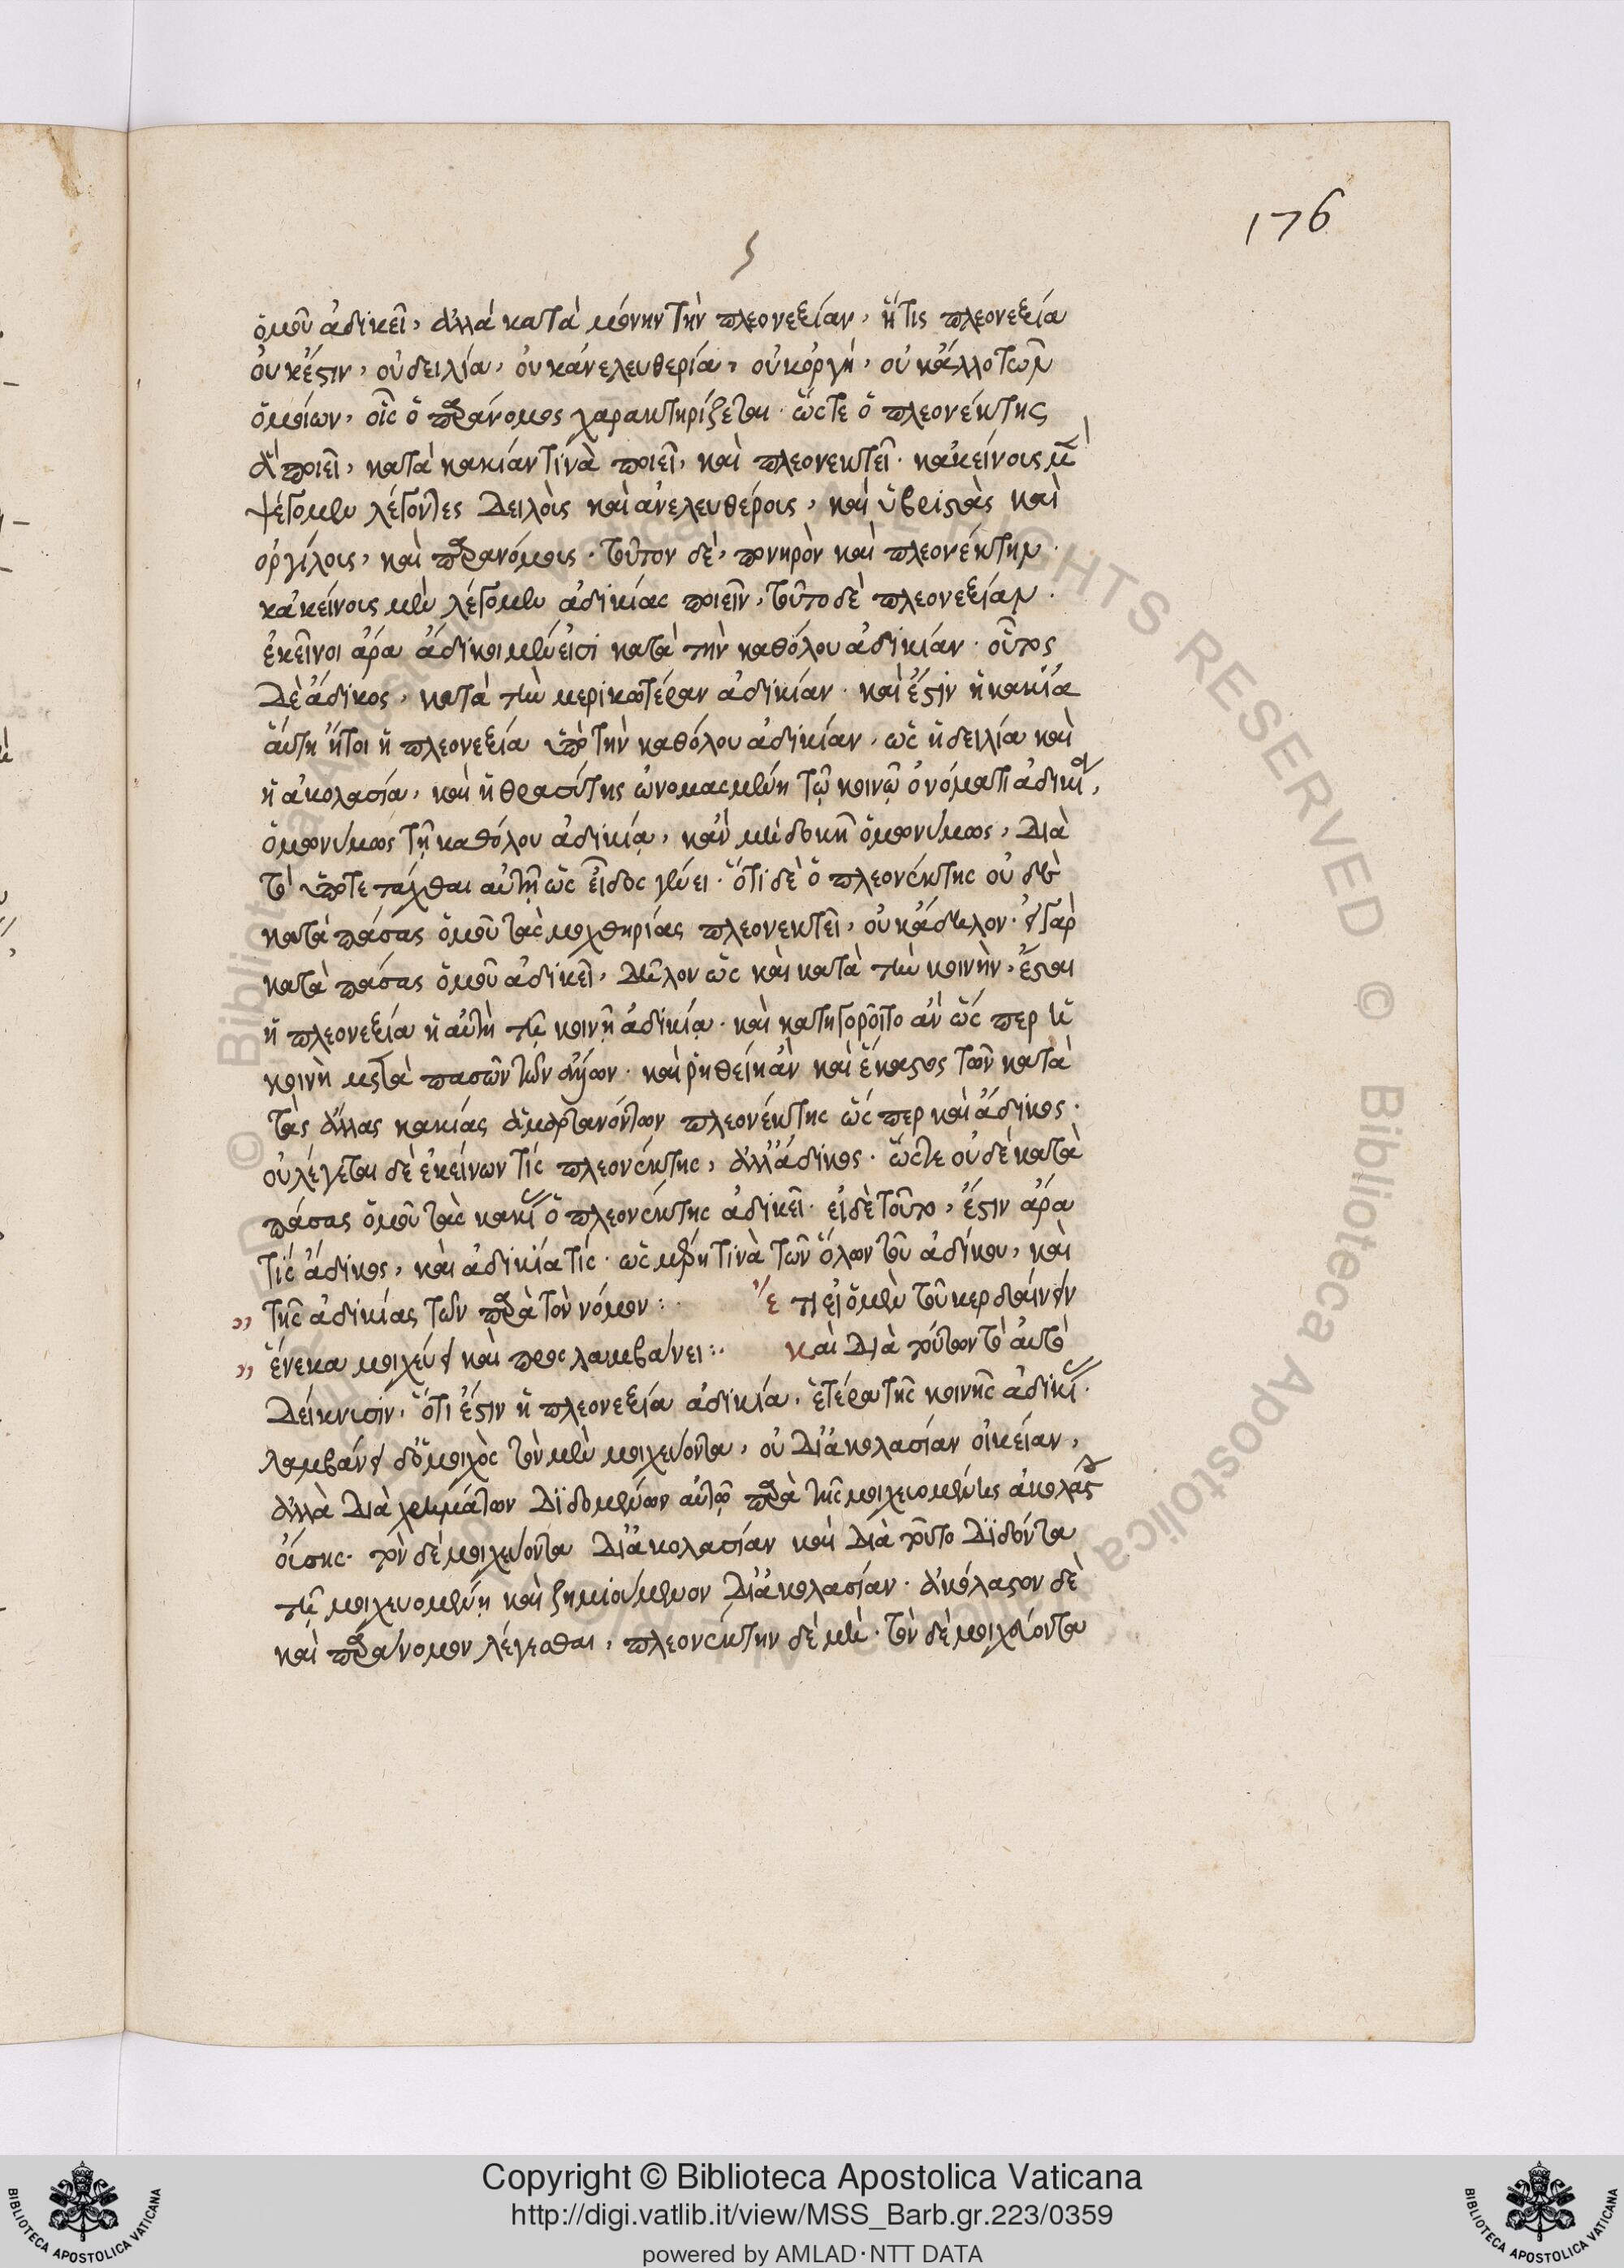 176
ὁμοῦ ἀδικεῖ, ἀλλὰ κατὰ μόνην τὴν πλεονεξίαν, ἥτις πλεονεξία
οὐκ ἔστιν, οὐ δειλία, οὐκ ἀνελευθερία, οὐκ ὀργή, οὐκ ἄλλο τῶν
ὁμοίων, οἷς ὁ παράνομος χαρακτηρίζεται. ὥστε ὁ πλεονέκτης
ἃ ποιεῖ, κατὰ κακίαν τινὰ ποιεῖ, καὶ πλεονεκτεῖ. κἀκείνους μὲν
ψέγομεν λέγοντες δειλοὺς καὶ ἀνελευθέρους, καὶ ὑβριστὰς καὶ
ὀργίλους, καὶ παρανόμους. τοῦτον δὲ, πονηρὸν καὶ πλεονέκτην.
κἀκείνους μὲν λέγομεν ἀδικίας ποιεῖν, τοῦτο δὲ πλεονεξίαν.
ἐκεῖνοι ἄρα ἄδικοι μέν εἰσι κατὰ τὴν καθόλου ἀδικίαν. οὗτος
δὲ ἄδικος, κατὰ τὴν μερικωτέραν ἀδικίαν. καὶ ἔστιν ἡ κακία
αὕτη ἤτοι ἡ πλεονεξία ὑπὸ τὴν καθόλου ἀδικίαν, ὡς ἡ δειλία καὶ
ἡ ἀκολασία, καὶ ἡ θρασύτης ὠνομασμένη τῷ κοινῷ ὀνόματι ἀδικία,
ὁμωνύμως τῇ καθόλου ἀδικίᾳ, κἂν μὴ δοκῇ ὁμωνύμως, διὰ
τὸ ὑποτετάχθαι αὐτῇ ὡς εἶδος γένει. ὅτι δὲ ὁ πλεονέκτης οὐδὲ
κατὰ πάσας ὁμοῦ τὰς μοχθηρίας πλεονεκτεῖ, οὐκ ἄδηλον. εἰ γὰρ
κατὰ πάσας ὁμοῦ ἀδικεῖ, δῆλον ὡς καὶ κατὰ τὴν κοινὴν, ἔσται
ἡ πλεονεξία ἡ αὐτὴ τῇ κοινῇ ἀδικίᾳ. καὶ κατηγοροῖτο ἂν ὥσπερ ἡ
κοινὴ μετὰ πασῶν τῶν. καὶ ῥηθείη ἂν καὶ ἕκαστος τῶν κατὰ
τὰς ἄλλας κακίας ἁμαρτανόντων πλεονέκτης ὥσπερ καὶ ἄδικος.
οὐ λέγεται δὲ ἐκείνων τίς πλεονέκτης, ἀλλ' ἄδικος. ὥστε οὐδὲ κατὰ
πάσας ὁμοῦ τὰς κακίας ὁ πλεονέκτης ἀδικεῖ. εἰ δὲ τοῦτο, ἔστιν ἄρα
τίς ἄδικος, καὶ ἀδικία τίς. ὡς μέρη τινὰ τῶν ὅλων τοῦ ἀδίκου, καὶ
τῆς ἀδικίας τῶν παρὰ τὸν νόμον :. ἔτι εἰ ὁ μὲν τοῦ κερδαίνειν
ἕνεκα μοιχεύει καὶ προσλαμβάνει :. καὶ διὰ τούτων τὸ αὐτὸ
δείκνυσιν, ὅτι ἔστιν ἡ πλεονεξία ἀδικία, ἑτέρα τῆς κοινῆς ἀδικίας.
λαμβάνει δ' ὁ μοιχὸς τὸν μὲν μοιχεύοντα, οὐ δι' ἀκολασίαν οἰκείαν,
ἀλλὰ διὰ χρημάτων διδομένων αὐτῷ παρὰ τῆς μοιχευομένης ἀκολάστου
οὔσης. τὸν δὲ μοιχεύοντα δι' ἀκολασίαν καὶ διὰ τοῦτο διδόντα
τῇ μοιχευομένῃ καὶ ζημιούμενον δι' ἀκολασίαν. ἀκόλαστον δὲ
καὶ παράνομον λέγεσθαι, πλεονέκτην δὲ μή. τὸν δὲ μοιχεύοντα
Copyright © Biblioteca Apostolica Vaticana
http://digi.vatlib.it/view/MSS_Barb.gr.223/0359
powered by AMLAD·NTT DATA